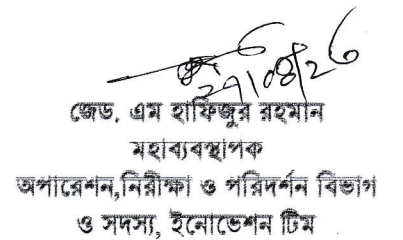 ২৭/০৪/২৬
জেড. এম হাফিজুর রহমান
মহাব্যবস্থাপক
অপারেশন,নিরীক্ষা ও পরিদর্শন বিভাগ
ও সদস্য, ইনোভেশন টিম